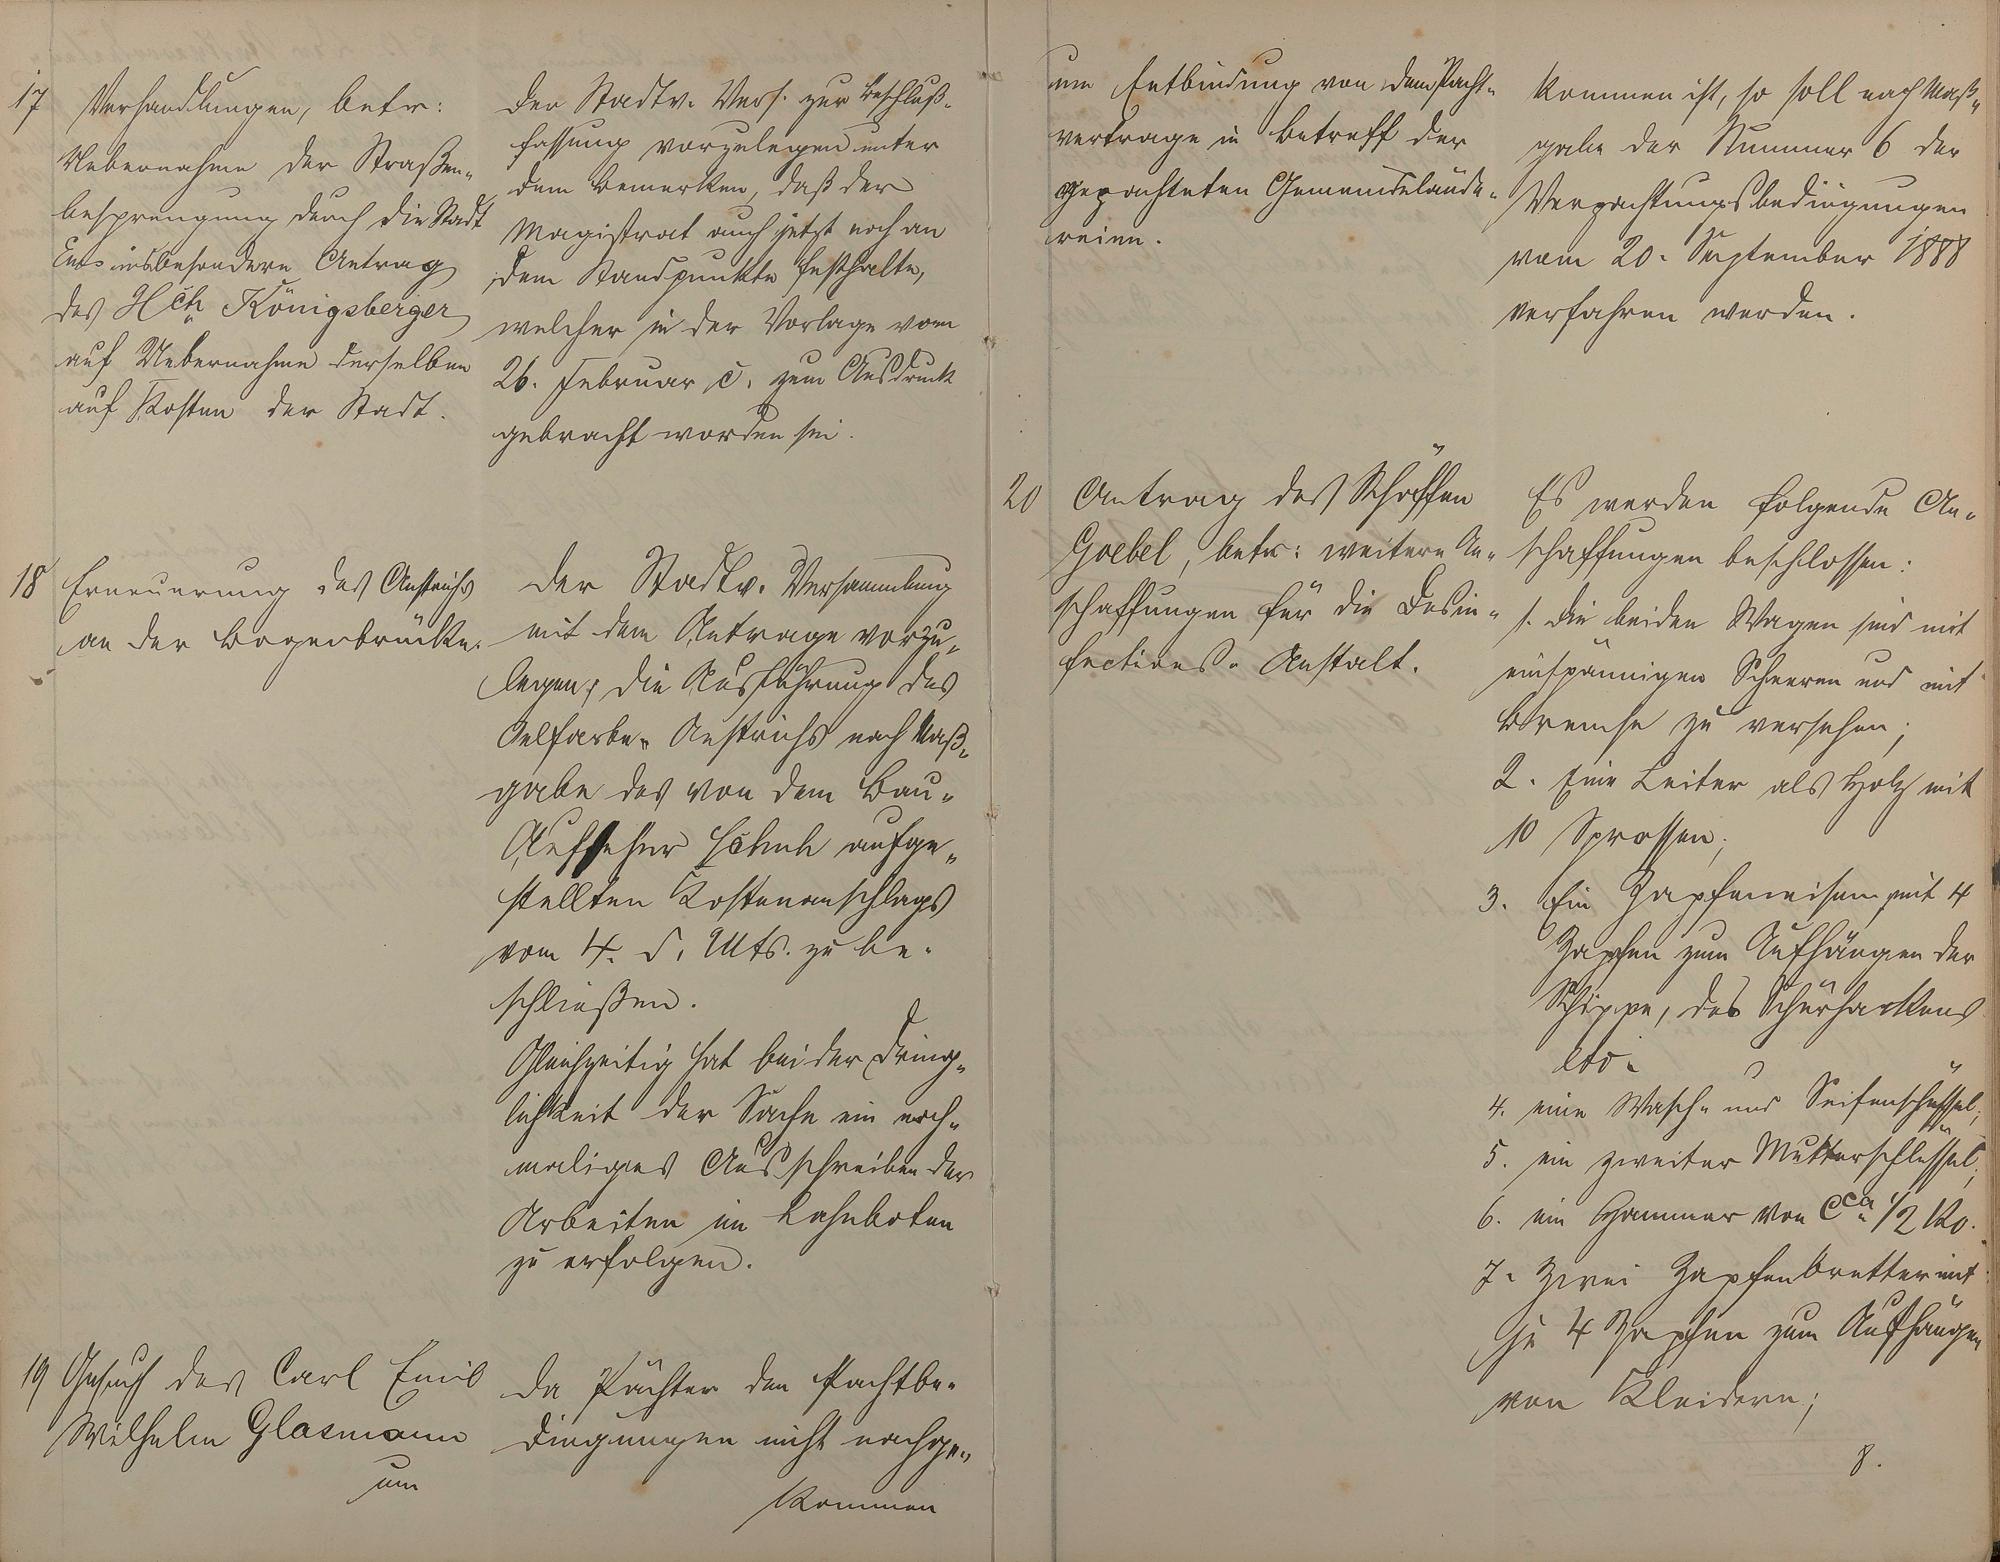 17 Verhandlungen, betr:
Uebernahme der Straßen-
besprengung durch die Stadt
insbesondere Antrag
des Hch Königsberger
auf Uebernahme derselben
auf Kosten der Stadt.
Der Stadtv. Vers. zur Beschluß-
fassung vorzulegen unter
dem Bemerken, daß der
Magistrat auch jetzt noch an
dem Standpunkte festhalte,
welcher in der Vorlage vom
26. Februar c. zum Ausdruck
gebracht worden sei.
18 Erneuerung des Anstrichs
an der Bogenbrücke.
Der Stadtv. Versammlung
mit dem Antrage vorzu-
legen, die Ausführung des
Oelfarbe-Anstrichs nach Maß-
gabe des von dem Bau-
Aufseher aufge-
stellten Kostenanschlags
vom 4. d. Mts. zu be-
schließen.
Gleichzeitig hat bei der Dring-
lichkeit der Sache ein noch-
maliges Ausschreiben der
Arbeiten im Lahnboten
zu erfolgen.
19 Gesuch des Carl Emil
Wilhelm Glasmann
um
Da Pächter den Pachtbe-
dingungen nicht nachge-
kommen
um Entbindung von dem Pacht-
vertrage in Betreff der
gepachteten Gemeindelände-
reien.
kommen ist, so soll nach Maß-
gabe der Nummer 6 der
Verpachtungsbedingungen
vom 20. September 1888
verfahren werden.
20 Antrag des Schöffen
Goebel, betr: weitere An-
schaffungen für die Desin-
fections-Anstalt.
Es werden folgende An-
schaffungen beschlossen:
1. die beiden Wagen sind mit
einspännigen Scheeren und mit
Bremse zu versehen;
2. Eine Leiter als Holz mit
10 Sprossen;
3. Ein Zapfeneisen mit 4
Zapfen zum Aufhängen der
Schippe, des Schürhackens
etc.
4. eine Wasch- und Seifenschüssel;
5. ein zweiter Mutterschlüssel;
6. ein Hammer von Cca 1/2 Ko.
7. Zwei Zapfenbretter mit
je 4 Zapfen zum Aufhängen
von Kleidern;
8.